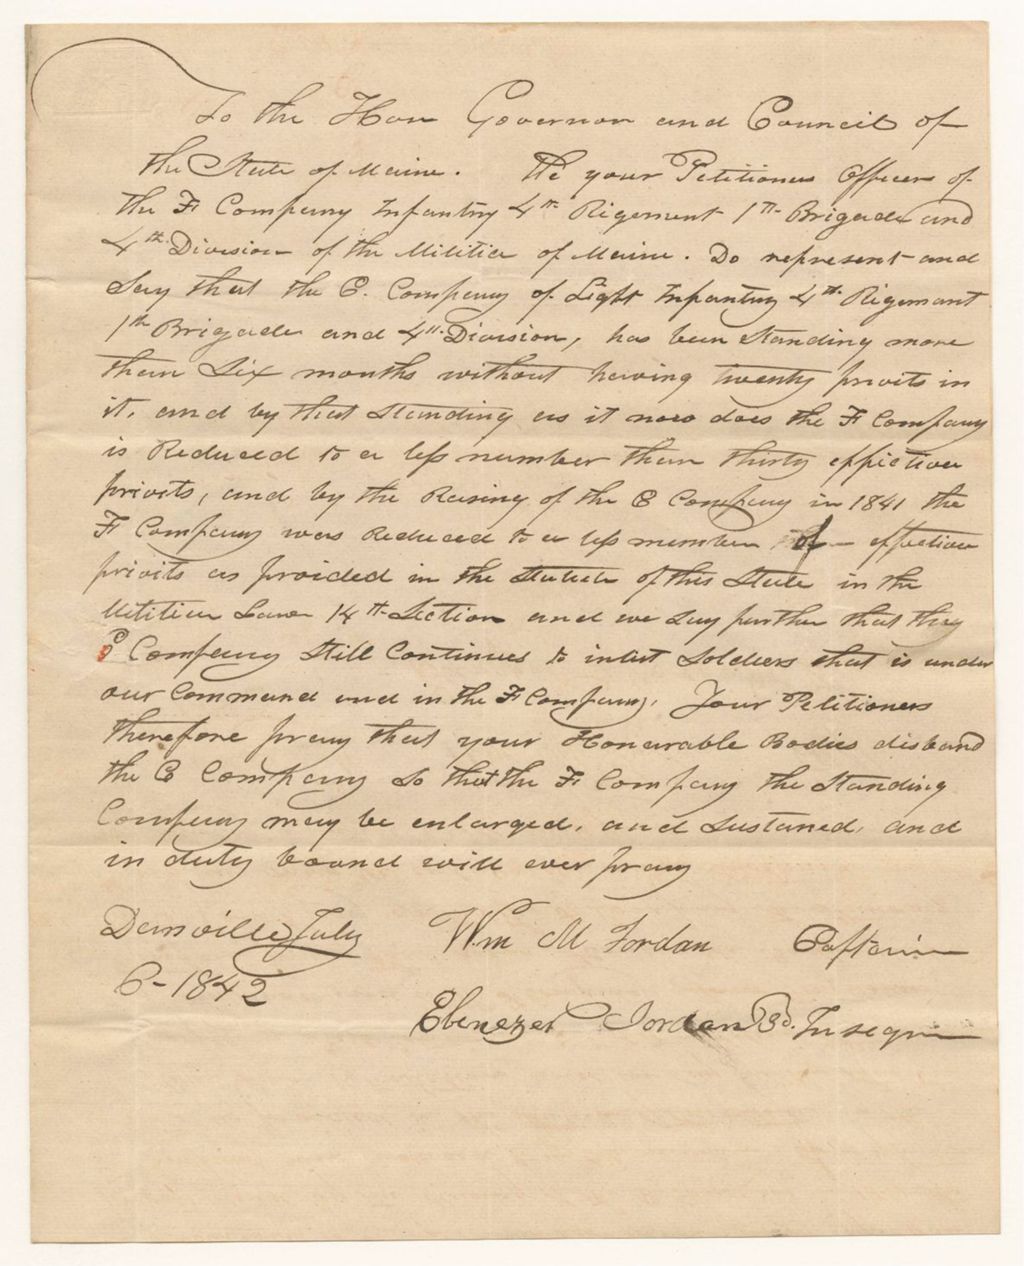 To the Hon Governor and Council of
the State of Maine. We your Petitioners Officers of
the F Company Infantry 4th Rigement 1th Brigade and
4th Division of the Militia of Maine. Do represent and
Say that the C. Company of Light Infantry 4th Rigemant
1th Brigade and 4th Division, has been Standing more
than Six months without having twenty privits in
it, and by that Standing as it now does the F Company
is Reduced to a less number than thirty effictive
privits, and by the Raising of the C Company in 1841 the
F Company was Reduced to a less number of effective
privits as provided in the Statute of this State in the
Militia Law 14th Section and we Say further that they
C Company Still Continues to inlist Soldiers that is under
our Command and in the F Company, Your Petitioners
therefore pray that your Honarable Bodies disband
the C Company So that the F Company the Standing
Company may be enlarged, and Sustaned, and
in duty bound will ever pray
Danville July Wm M Jordan Captain
6 - 1842
Ebenezer Jordan 3d. Insegn